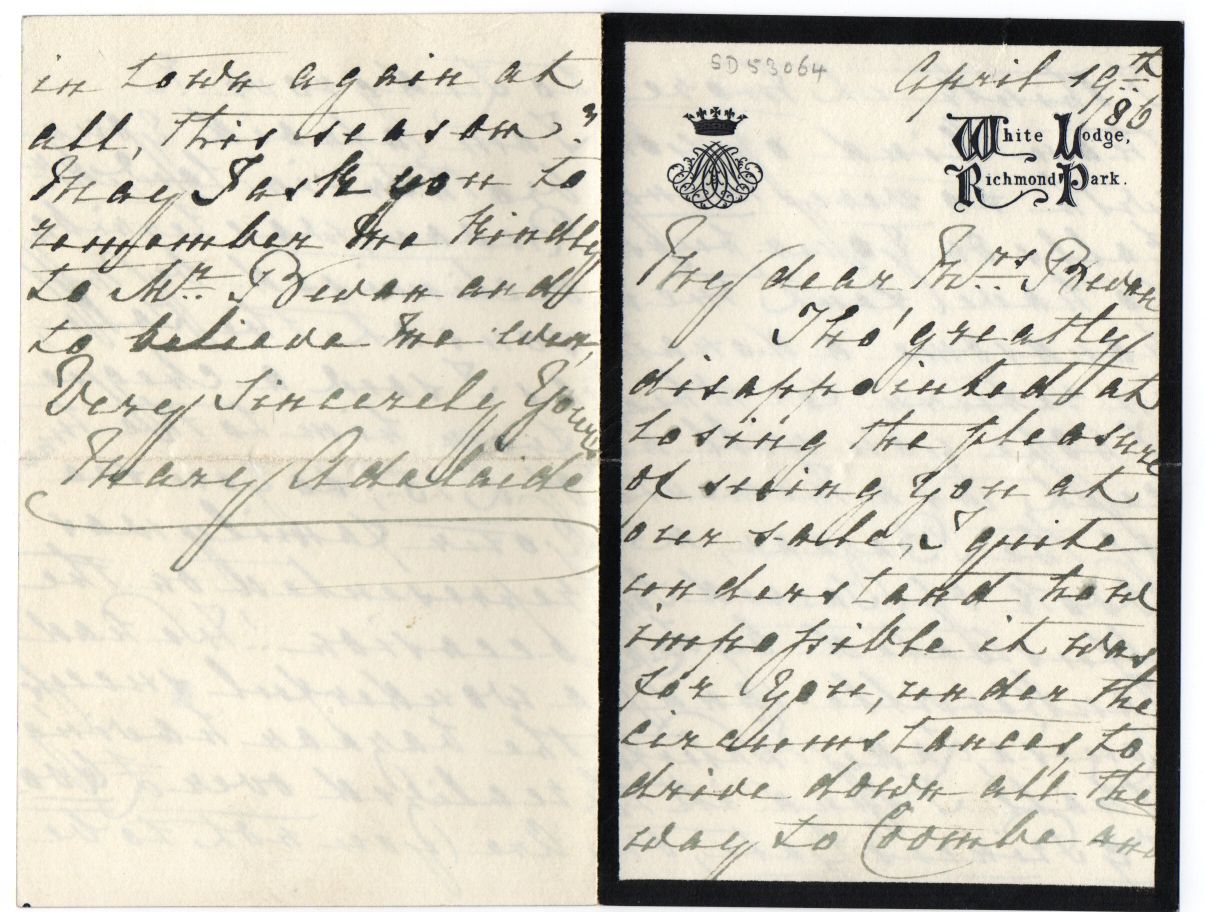 SD53064
April 19th
/86
White Lodge,
Richmond Park.
My dear Mrs Bevan
Tho' greatly
disappointed at
losing the pleasure
of seeing you at
our sale, I quite
understand how
impossible it was
for You, under the
circumstances, to
drive down all the
way to Coombe and
in town again at
all, this season?
May I ask you to
remember me kindly
to Mr Bevan and
to believe me ever,
Very Sincerely Yours
Mary Adelaide